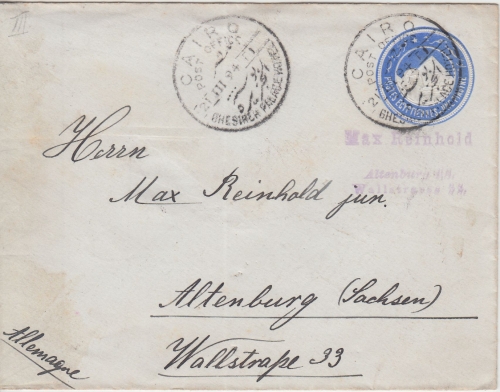 III
CAIRO
POST OFFICE
GHESIREH PALACE HOTEL
CAIRO
POST OFFICE
GHESIREH PALACE HOTEL
POSTES EGYPTIENNES
Max Reinhold
Altenburg S/A.
Wallstrasse
Herrn
Max Reinhold jun.
Altenburg (Sachsen)
Wallstraße 33
Allemagne